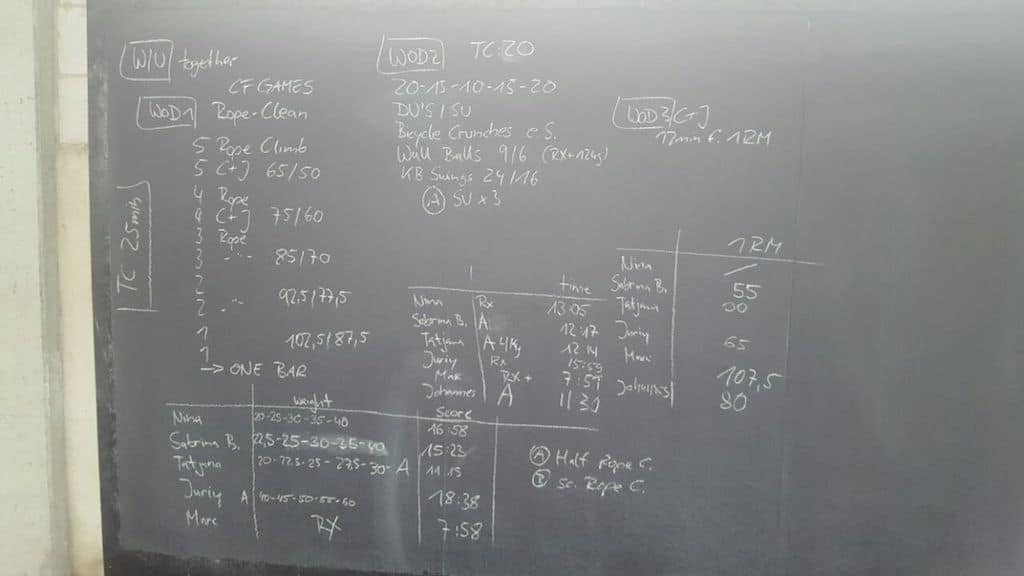 W/U together
CF GAMES
WOD1 Rope-Clean
5 Rope Climb
5 C+J 65/50
4 Rope
4 C+J 75/60
3 Rope
3 -"- 85/70
2
2 -"- 92,5/77,5
1
1 102,5/87,5
→ ONE BAR
TC 25min
WOD2 TC:20
20-15-10-15-20
DU'S/SU
Bicycle Crunches e S.
Wall Balls 9/6 (RX+12kg)
KB Swings 24/16
A SU x 3
WOD3 C+J
12min f. 1RM
time
Nina Rx 13:05
Sabrina B. A 12:17
Tatjana A-4Kg 12:14
Juriy Rx 15:59
Marc RX+ 7:59
Johannes A 11:30
1RM
Nina
Sabrina B. 55
Tatjana 30
Juriy 65
Marc 107,5
Johannes 80
weight Score
Nina 20-25-30-35-40 16:58
Sabrina B. 22,5-25-30-35-40 15:23
Tatjana 20-22,5-25-27,5-30-A 11:15
Juriy A 40-45-50-55-60 18:38
Marc RX 7:58
A Half Rope C.
B so Rope C.